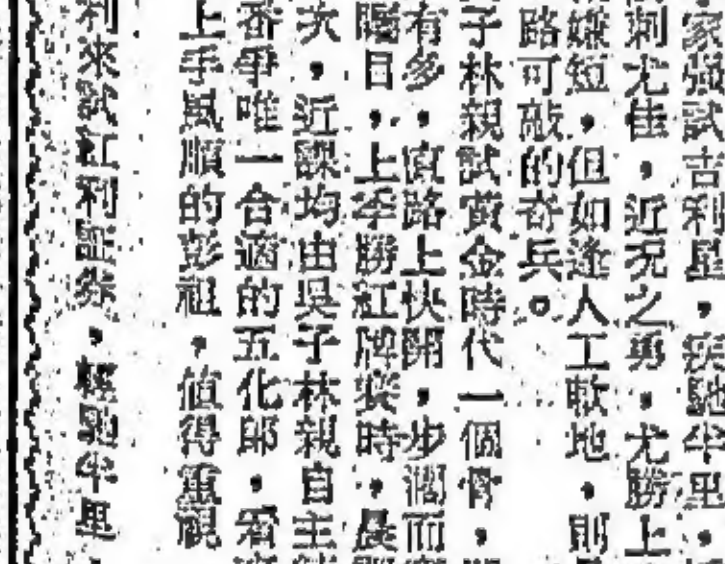 家強試吉利星，疾馳半里，
刺尤佳，近況之勇，尤勝上
嫌短，但如逢人工軟地，則
路可敲的奇兵。
子林親試黃金時代一個骨，
有多，直路上快開，步濶而
矚目，上季勝紅牌獎時，晨
次，近課均由吳子林親自主
番爭唯一合適的五化郎，看
上手風順的彭祖，值得重視
利來試紅利証券，輕馳半里